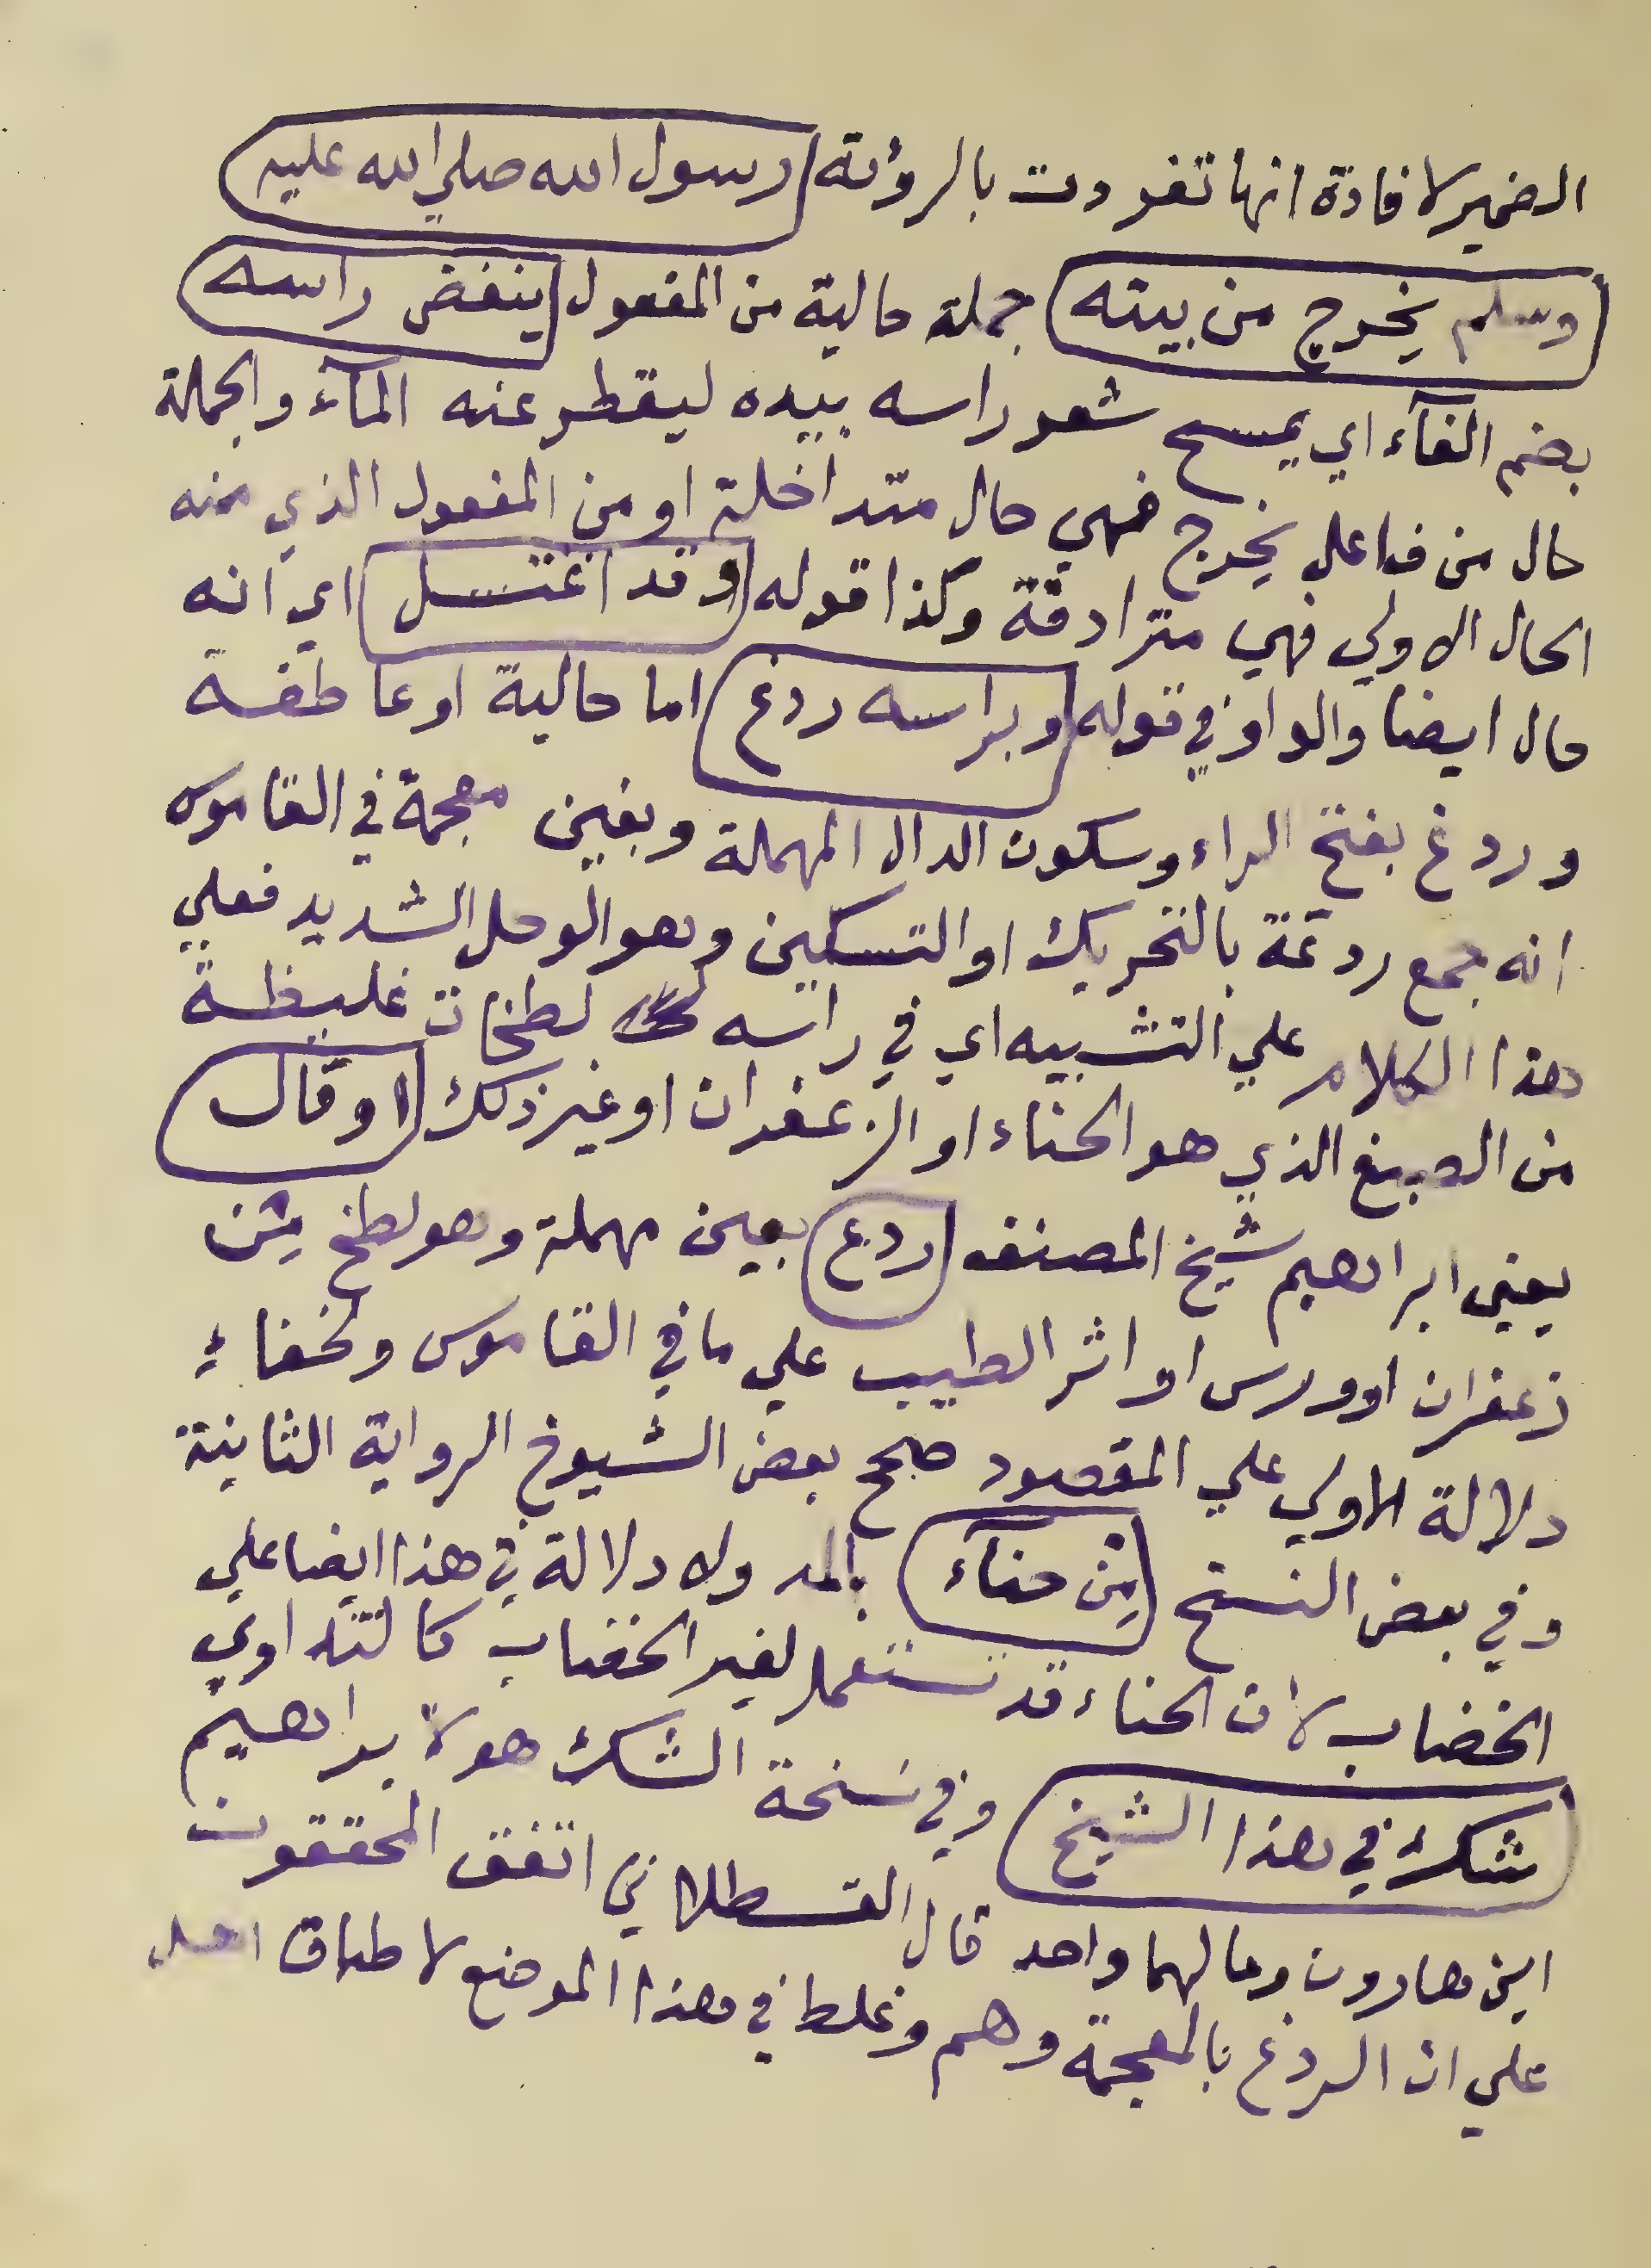 الضمير لافادة انها تفردت بالرؤية رسول الله صلي الله عليه
وسلم يخرج من بيته جملة حالية من المفعول ينفض راسه
بضم الفآء اي يمسح شعر راسه بيده ليقطر عنه المآء والجملة
حال من فاعل يخرج فهي حال متداخلة او من المفعول الذي منه
الحال الاولي فهي مترادفة وكذا قوله وقد اغتسل اي انه
حال ايضا والواو في قوله وبراسه ردغ اما حالية او عاطفة
وردغ بفتح الراء وسكون الدال المهملة وبغين معجمة في القاموس
انه جمع ردغة بالتحريك او التسكين وهو الوحل الشديد فعلي
هذا الكلام علي التشبيه اي في راسه لطخات غليظة
من الصبغ الذي هو الحناء او الزعفران او غير ذلك او قال
يعني ابراهيم شيخ المصنف ردع بعين مهملة وهو لطخ مِن
زعفران او ورس او اثر الطيب علي ما في القاموس ولخفاء
دلالة الاولي علي المقصود صحح بعض الشيوخ الرواية الثانية
وفي بعض النسخ مِن حنآء بالمد ولا دلالة في هذا ايضا علي
الخضاب لان الحناء قد تستعمل لغير الخضاب كالتداوي
شك في هذا الشيخ وفي نسخة الشك هو لابراهيم
ابن هارون ومالهما واحد قال القسطلاني اتفق المحققون
علي ان الردغ بالمعجمة وهم وغلط في هذا الموضع لاطباق اهل